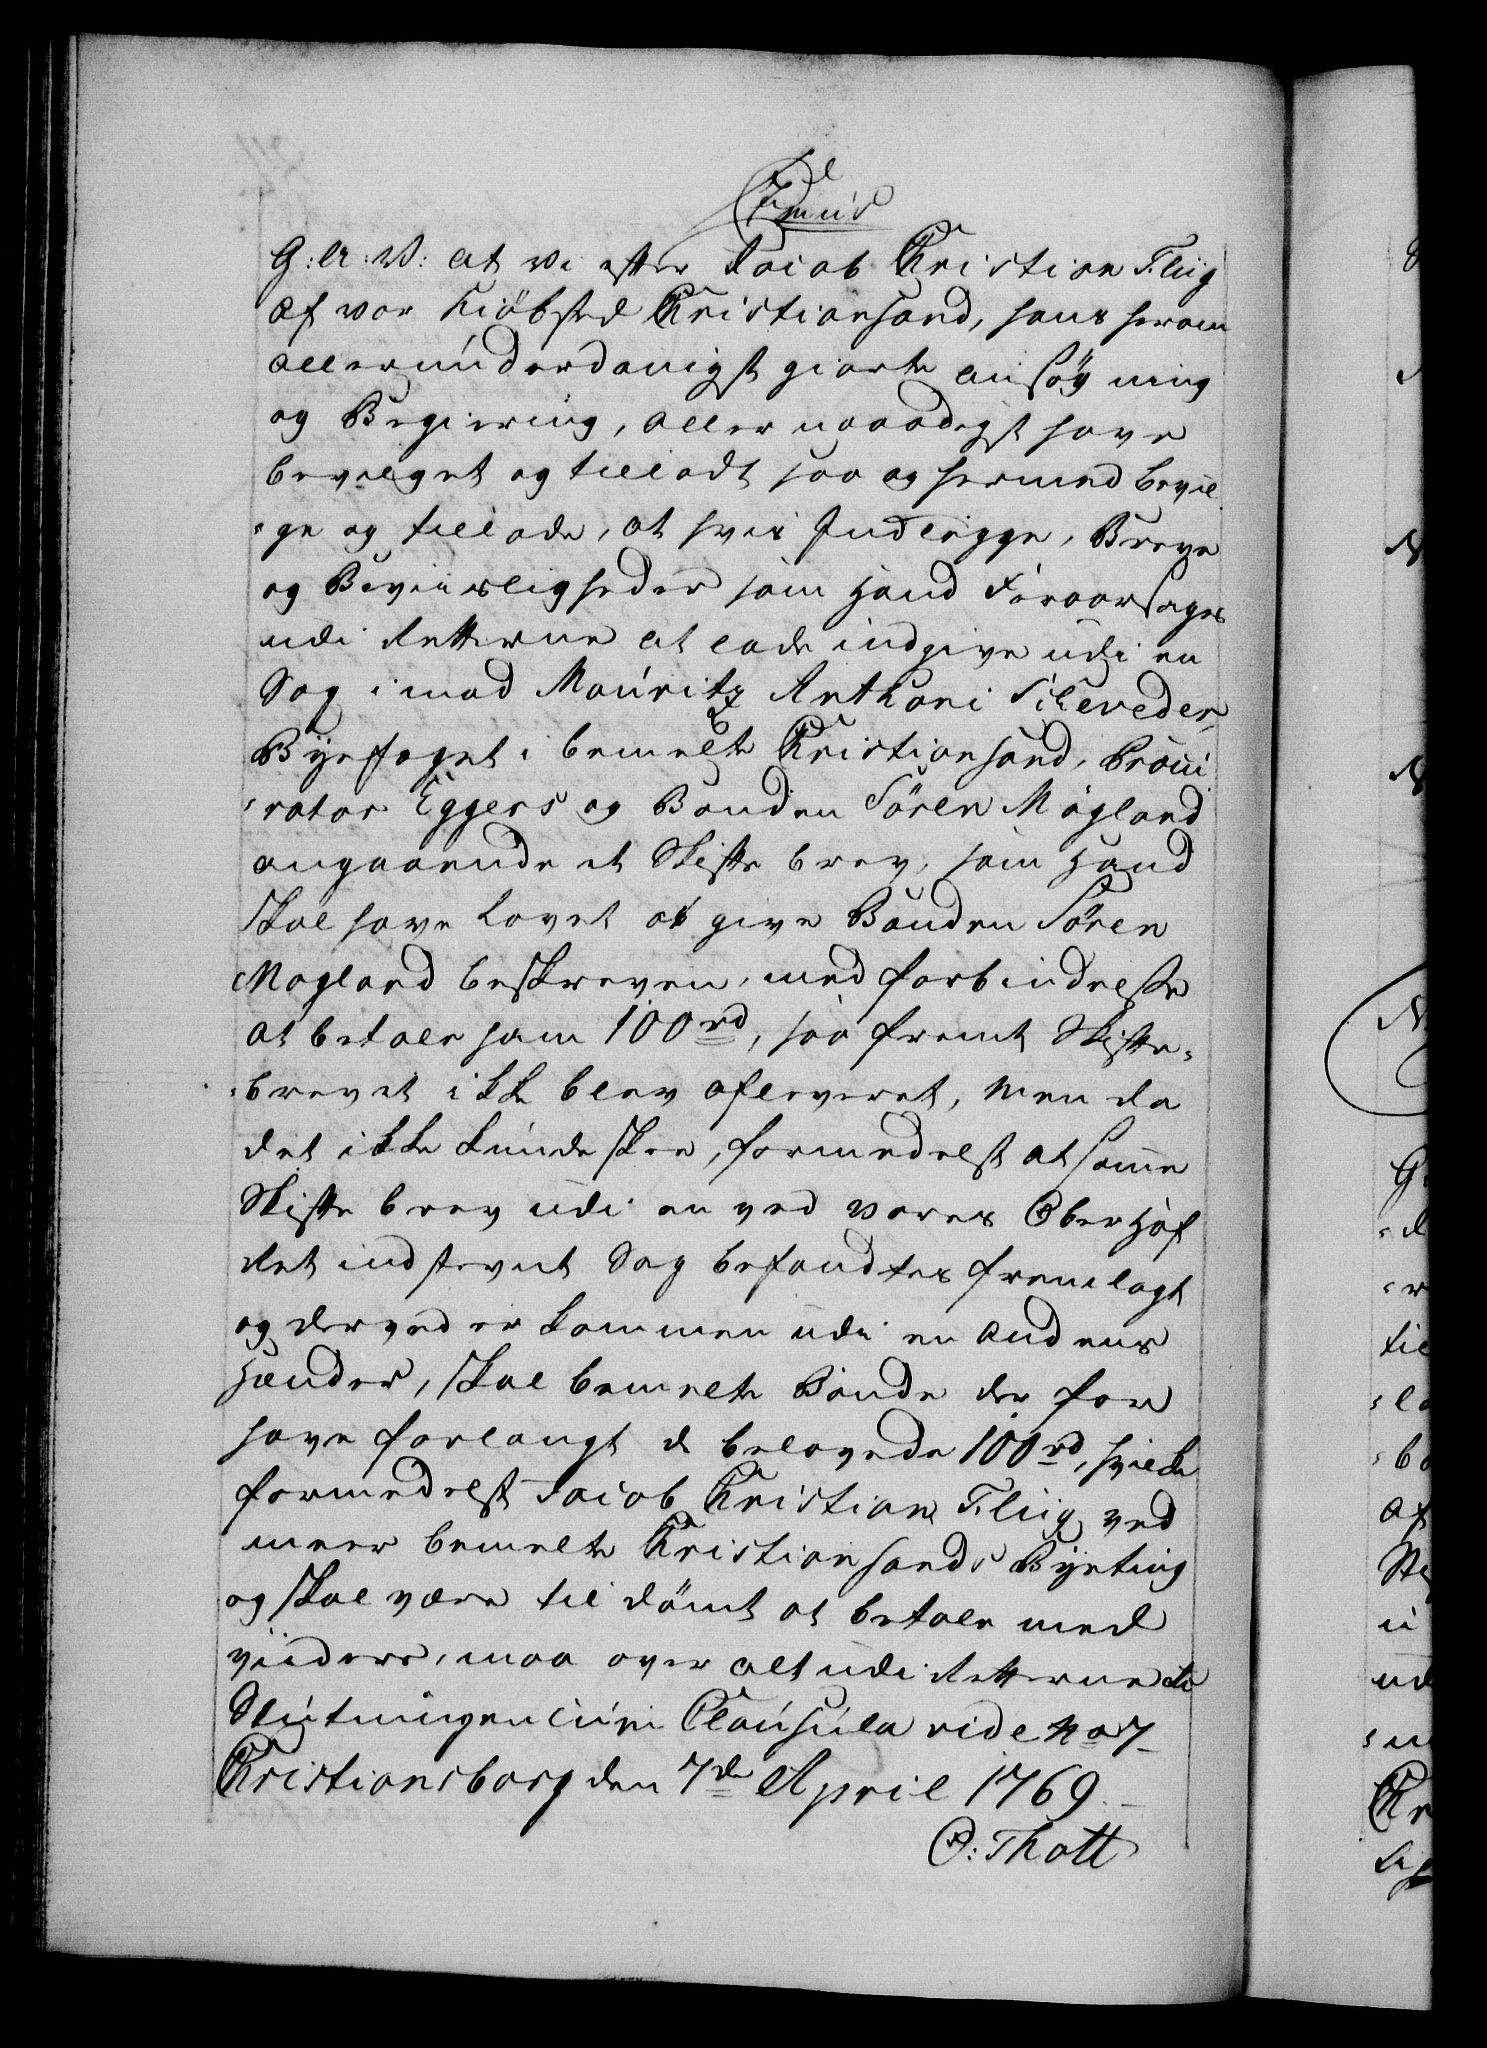 G: A: V: at Vi efter Jacob Christian Flüg
af vor Kiöbsted Christiansand, hans herom
allerunderdanigst giorte ansøgning
og Begiering, allernaadigst have
bevilget og tilladt saa og hermed bevil
-ge og tillade, at hvis Indlegge, Breve
og Beviisligheder som hand foraarsages
udi Retterne at lade indgive udi en
Sag imod Mauritz Anthoni
Byefoget i bemelte Christiansand,
-rator Eggers og Bonden Sören Mögland
angaaende et Skifte brev, som hand
skal have lovet at give Bonden Sören
Mogland beskreven, med forbindelse
at betale ham 100 rd, saa fremt Skifte-
-brevet ikke blev afleveret, men da
det ikke kunde skee, formedelst at same
Skifte brev udi en ved vores OberHof
Ret indstevnt Sag befandtes fremlagt
og derved er kommen udi en andens
Hænder, skal bemelte Bonde der for
have forlangt de belovede 100 rd, hvilke
formedelst Jacob Christian Flüg ved
meer bemelte Christiansands Byeting
og skal være til dömt at betale med
viidere, maa over alt udi Retterne &c
Slutningen cum Clausula vide No 7
Christiansborg den 7de April 1769
O: Thott